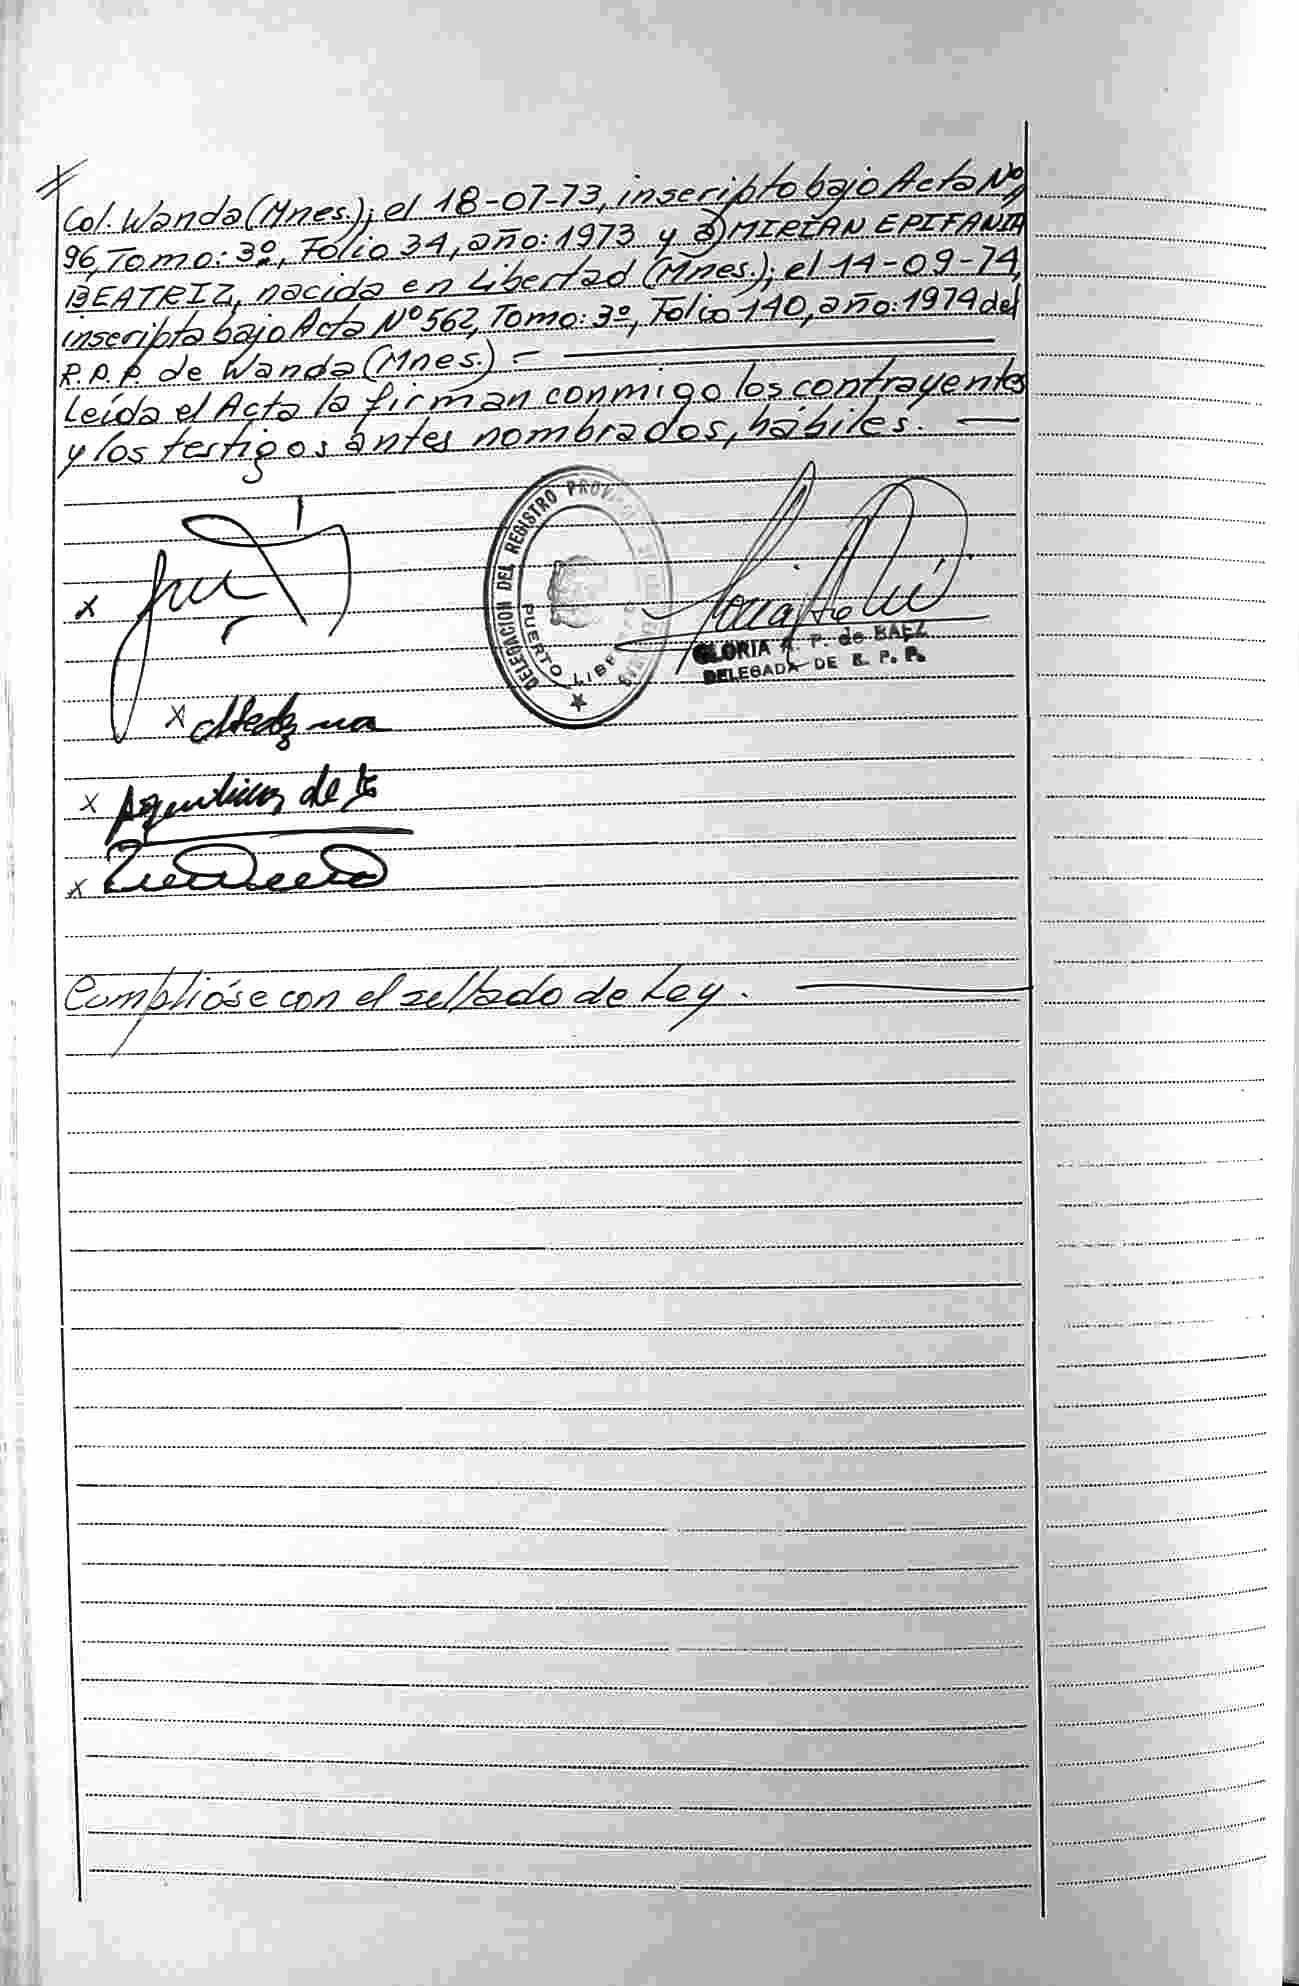 Col. Wanda (Mnes.); el 18-07-73, inscripto bajo Acta Nº
96, Tomo: 3º, Folio 34, año: 1973 y 2) MIRIAN EPIFANIA
BEATRIZ, nacida en Libertad (Mnes.); el 14-09-74,
inscripta bajo Acta Nº 562, Tomo: 3º, Folio 140, año: 1974 del
R.P.P. de Wanda (Mnes.) -
Leída el Acta la firman conmigo los contrayentes
y los testigos antes nombrados, hábiles.
DELEGACION DEL REGISTRO PROVINCIAL
PUERTO LIBERTAD
GLORIA A. P. de BAEZ
DELEGADA DE R. P. P.
x
x
x
x
Cumplióse con el sellado de Ley.